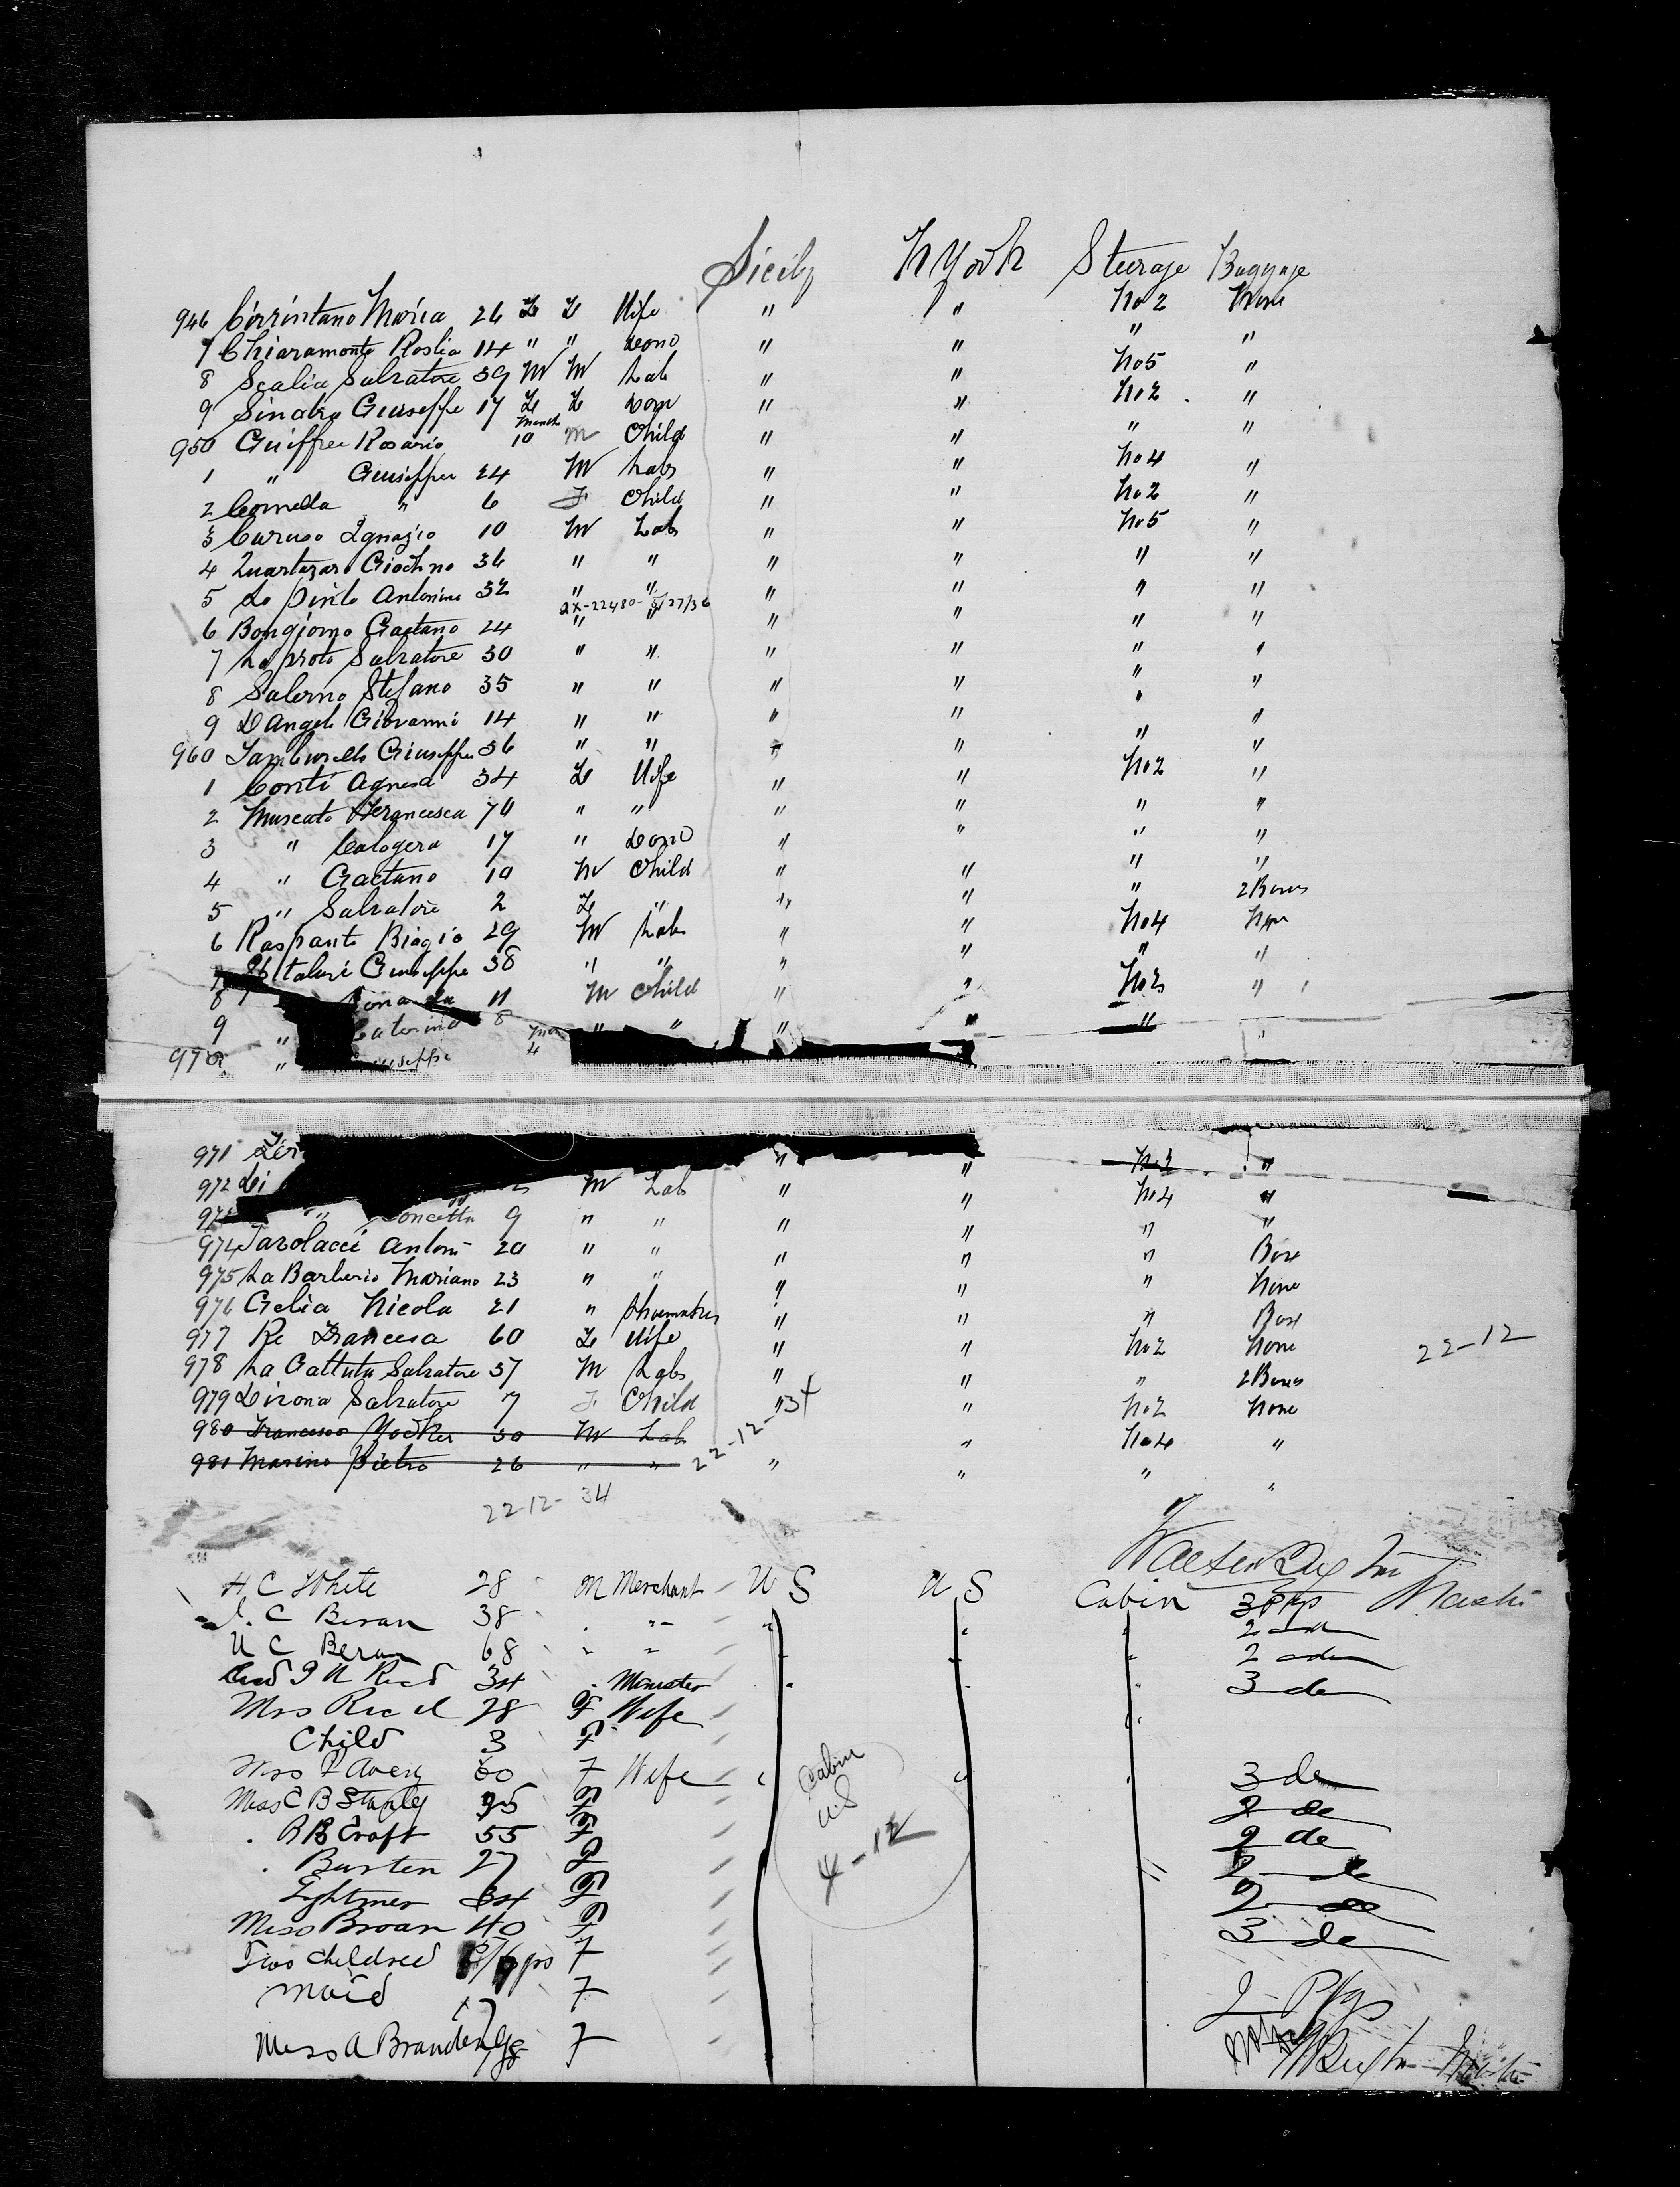 Sicily N York Steerage Baggage
946 Cirrintano Maria 26 Fe Fe Wife " " No 2 None
7 Chiaramonte Roslia 14 " " Domo " " " "
8 Scalia Salvatore 39 M M Lab " " No 5 "
9 Sinatra Giuseppe 17 Fe Fe Dom " " No 2 "
950 Guiffre Rosario 10 Month M Child " " " "
1 " Guiseppe 24 M Labr " " No 4 "
2 Cornella " 6 F Child " " No 2 "
3 Caruso Ignazio 10 M Lab " " No 5 "
4 Quartazaro Giochno 36 " " " " " "
5 Lo Pinto Antonino 32 " " " " " "
2X-22480- 27/36
6 Bongiorno Gaetano 24 " " " " " "
7 Lo Proto Salvatore 30 " " " " " "
8 Salerno Stefano 35 " " " " " "
9 D Angelo Giovanni 14 " " " " " "
960 Tamburello Giuseppe 36 " " " " " "
1 Conti Agnesa 34 Fe Wife " " No 2 "
2 Muscato Francesca 70 " " " " " "
3 " Calogera 17 " Domo " " " "
4 " Gaetano 10 M Child " " " "
5 " Salvatore 2 Fe " " " " 2 Boxes
6 Raspanti Biagio 29 M Labr " " No 4 None
talari Giuseppe 38 " " " " " "
8 11 M Child " " No 2 "
9 " Caterina 8 " " " " " "
970 " Giuseppe 4 "
971 " " No 3 "
972 Di M Lab " " No 4 "
" Concetta 9 " " " " " "
974 Tarolacci Antoni 20 " " " " " Box
975 La Barberio Mariano 23 " " " " " None
976 Gelia Nicola 21 " Shoemaker " " " Box
977 Re Francesca 60 Fe Wife " " No 2 None 22-12
978 La Gattuta Salvatore 37 M Labr " " " 2 Boxes
979 Dirona Salvatore 7 F Child " " No 2 None
980 Francesco Yocker 30 M Lab 22-12-34 " No 4 "
981 Marino Pietro 26 " " " " " "
22-12-34
H. C White 28 M Merchant U S U S Cabin 3 Pkgs
J. C Beran 38 " " " " " 2 do
U C Beran 68 " " " " " 2 do
Reed 34 " Minister " " " 3 do
Mrs Reed 28 F Wife
Child 3 F
Mrs F Avery 60 F Wife " " " 3 do
Miss C B Staply F 2 do
" B B Croft 55 F 2 do
" Burten 27 F 2 do
Lightner 34 F 2 do
Miss Broan 40 F 3 do
Cabin
US
4-12
Two children F
Maid F 2 Pkgs
Miss A F